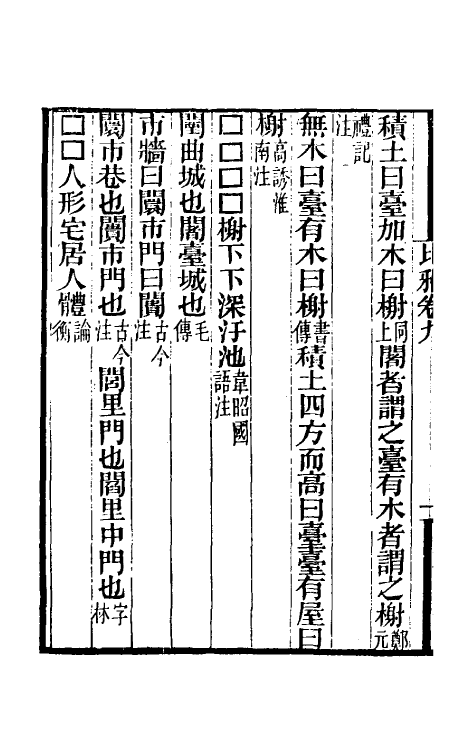 積土曰臺加木曰榭同上闍者謂之臺有木者謂之榭鄭元
禮記注
無木曰臺有木曰榭書傳積土四方而高曰臺臺有屋曰
榭高誘淮南注
□□□□榭下下深汙池韋昭國語注
闉曲城也闍臺城也毛傳
市牆曰闤市門曰闠古今注
闤市巷也闠市門也古今注閭里門也閻里中門也字林
□□人形宅居人體論衡
比雅卷九